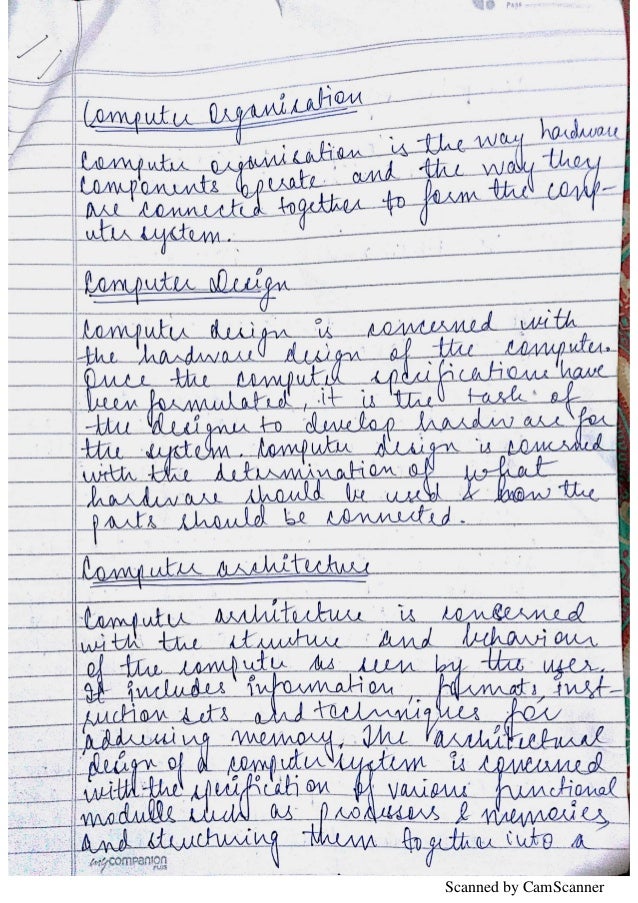 Page
Computer Organisation
Computer organisation is the way hardware
components operate and the way they
are connected together to form the comp-
uter system.
Computer Design
Computer design is concerned with
the hardware design of the computer.
Once the computer specifications have
been formulated, it is the task of
the designer to develop hardware for
the system. Computer design is concerned
with the determination of what
hardware should be used & how the
parts should be connected.
Computer architecture
Computer architecture is concerned
with the structure and behaviour
of the computer as seen by the user.
It includes information, formats, inst-
ruction sets and techniques for
addressing memory. The architectural
design of a computer system is concerned
with the specification of various functional
modules such as processors & memories,
and structuring them together into a
mycompanion
PLUS
Scanned by CamScanner